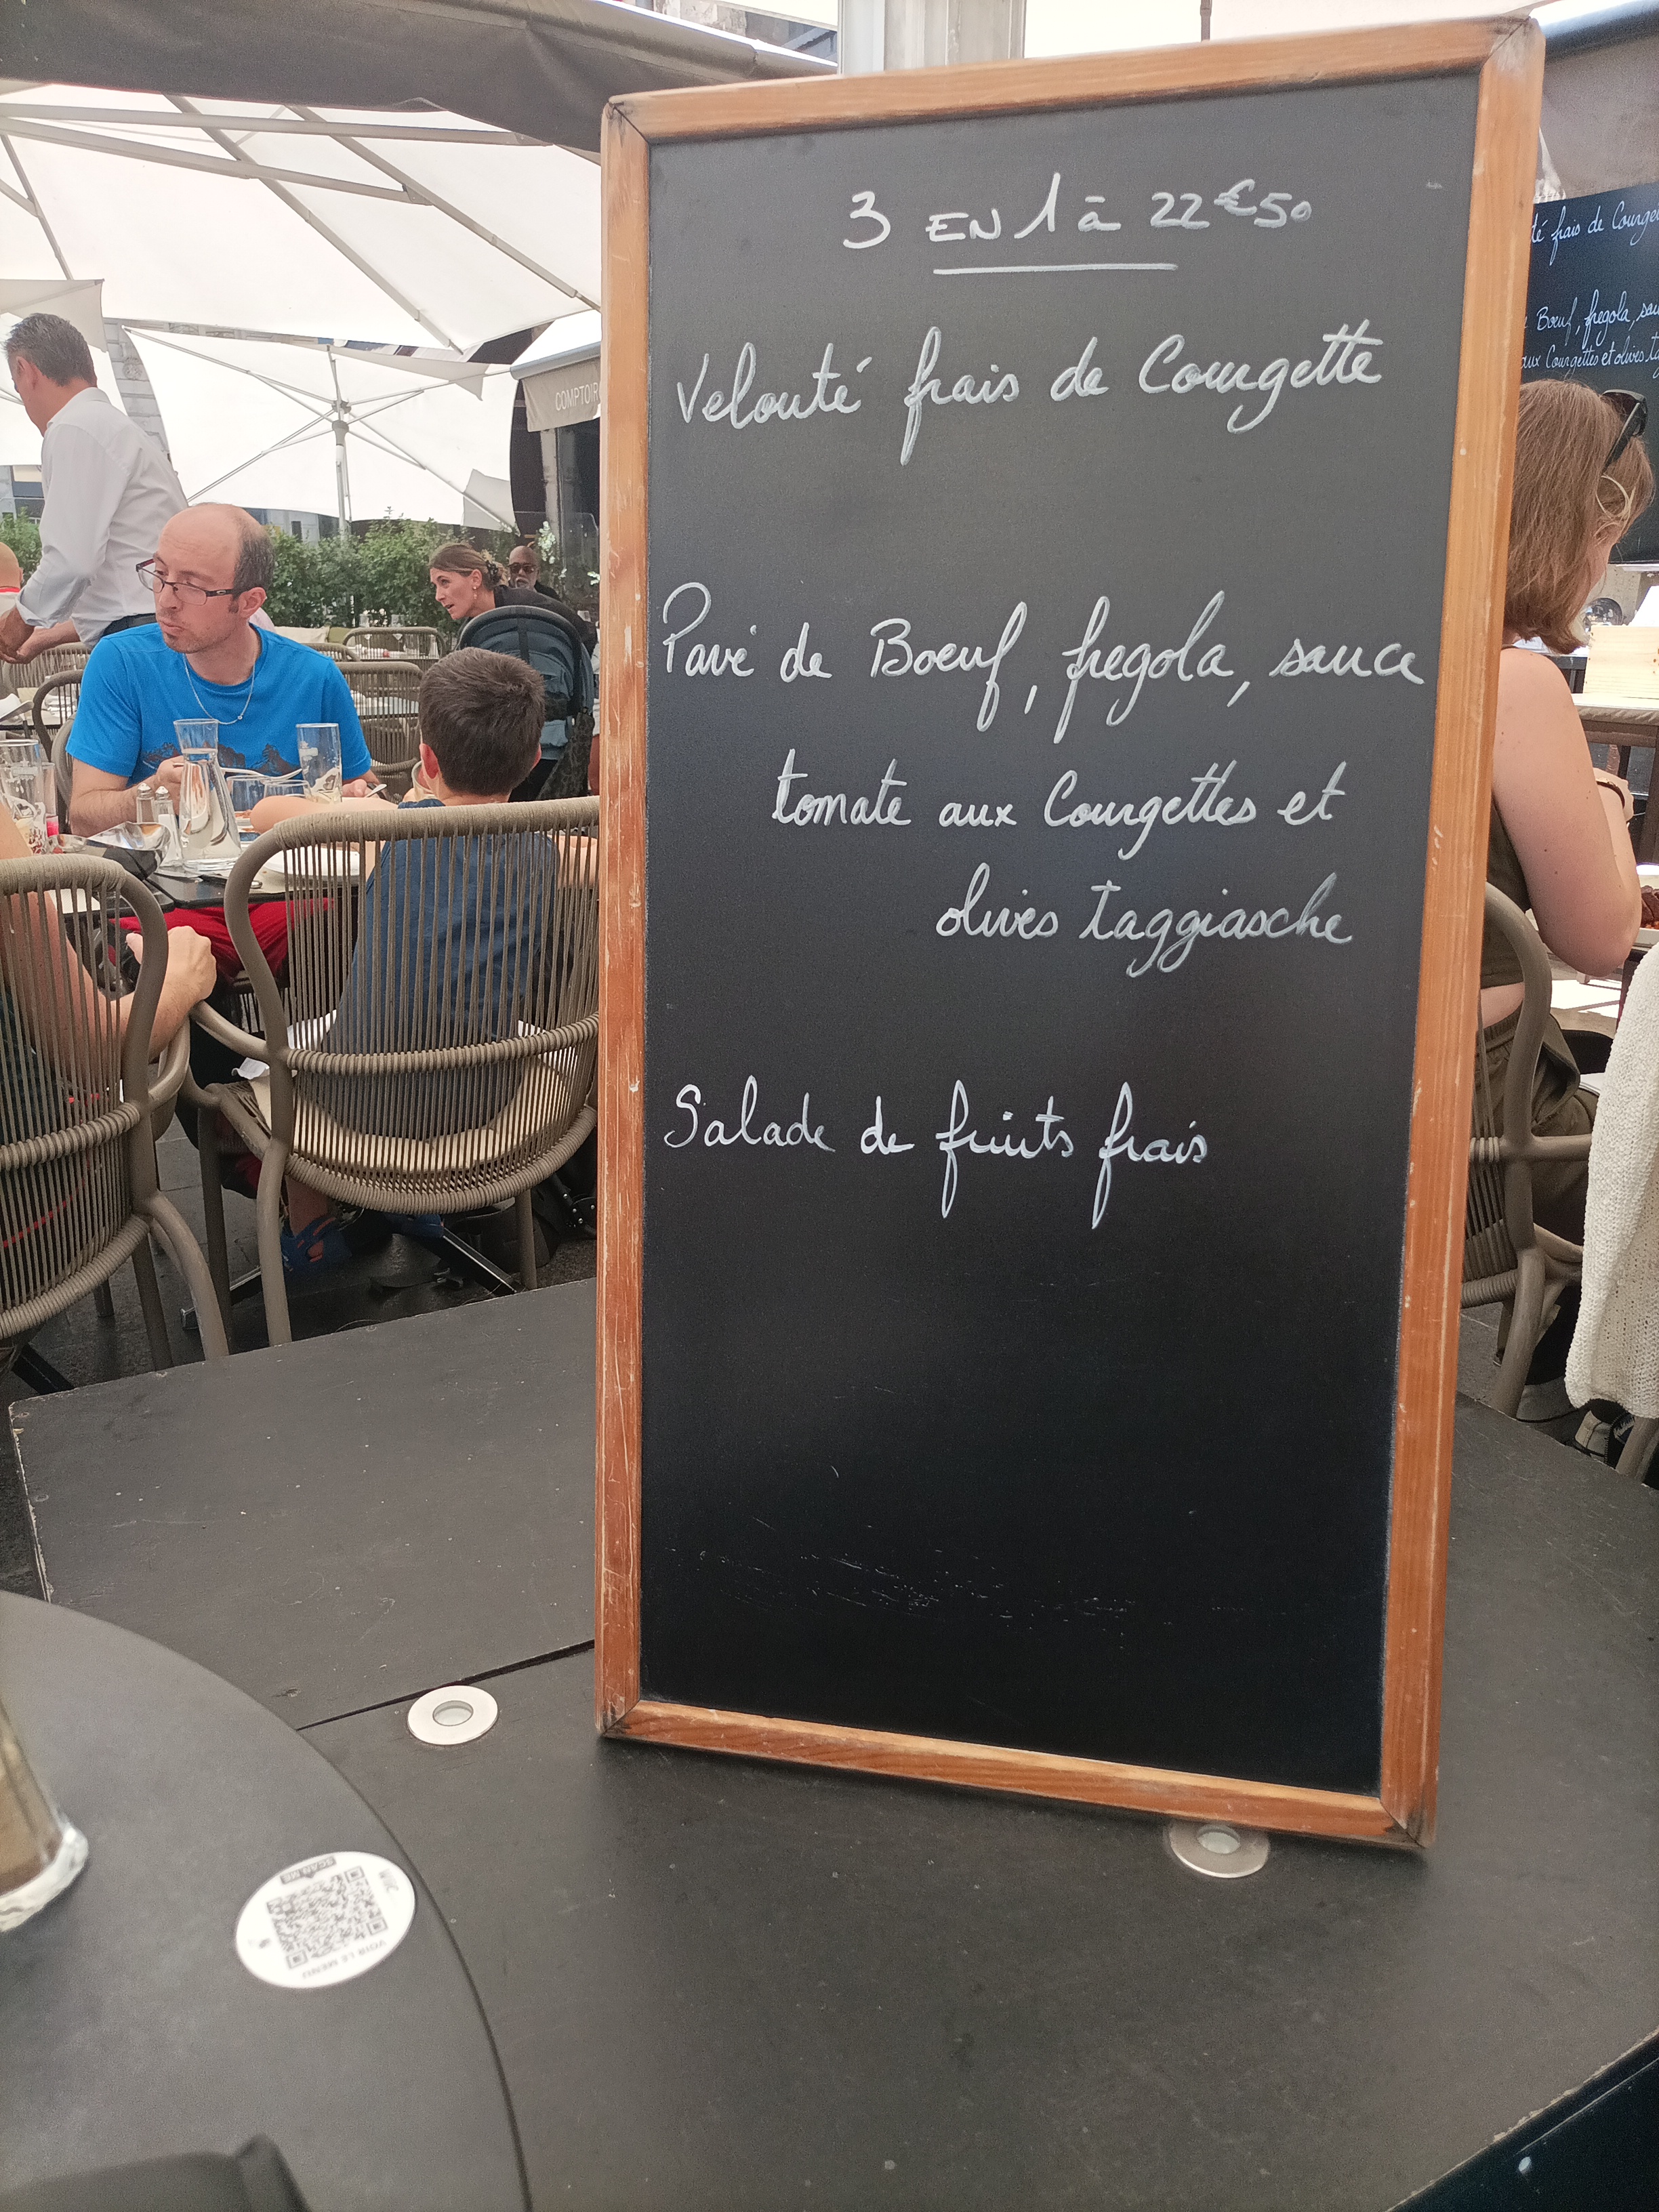 3 EN 1 à 22€50
Velouté frais de Courgette
Pavé de Boeuf, fregola, sauce
tomate aux Courgettes et
olives taggiasche
Salade de fruits frais
COMPTOIR
té frais de Courge
Boeuf, fregola, sau
aux Courgettes et olives ta
SCAN ME
VOIR LE MENU